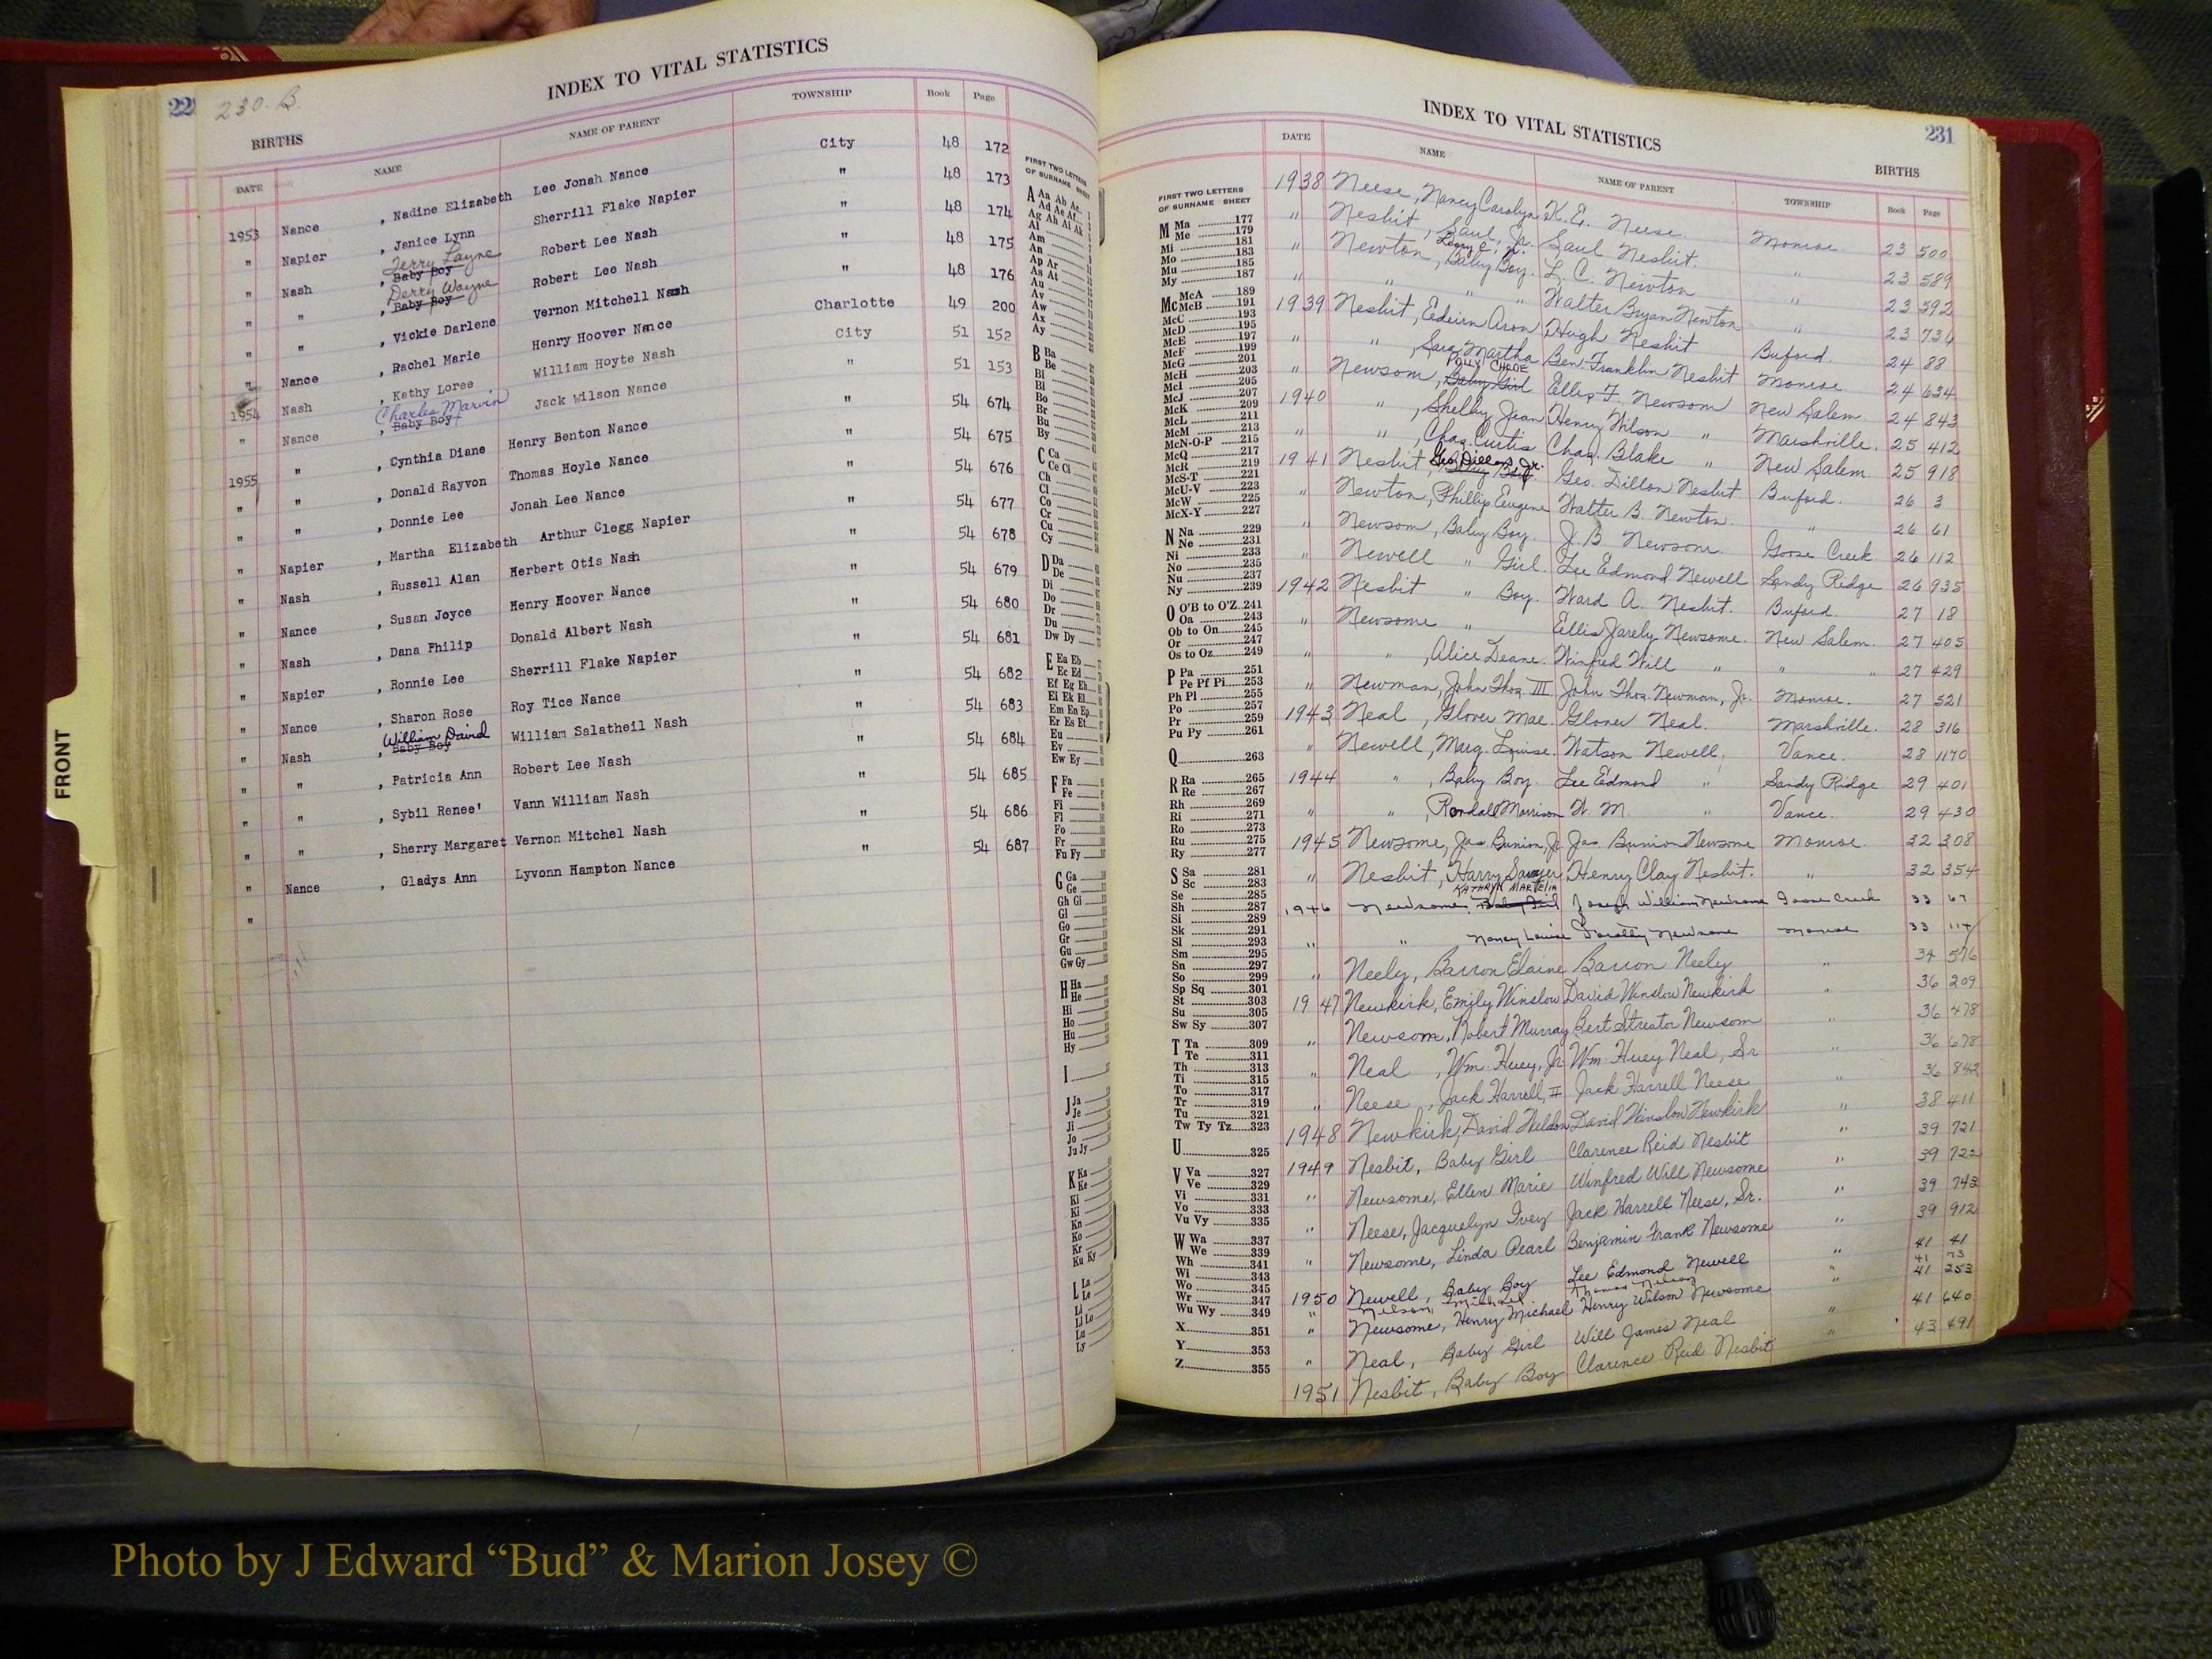 22 230. B.
INDEX TO VITAL STATISTICS
BIRTHS
DATE NAME NAME OF PARENT TOWNSHIP Book Page
1953 Nance , Nadine Elizabeth Lee Jonah Nance City 48 172
" Napier , Janice Lynn Sherrill Flake Napier " 48 173
" Nash , Baby Boy Jerry Layne Robert Lee Nash " 48 174
" " , Baby Boy Derry Wayne Robert Lee Nash " 48 175
" " , Vickie Darlene Vernon Mitchell Nash " 48 176
" Nance , Rachel Marie Henry Hoover Nance Charlotte 49 200
1954 Nash , Kathy Loree William Hoyte Nash City 51 152
" Nance , Baby Boy Charles Marvin Jack Wilson Nance " 51 153
1955 " , Cynthia Diane Henry Benton Nance " 54 674
" " , Donald Rayvon Thomas Hoyle Nance " 54 675
" " , Donnie Lee Jonah Lee Nance " 54 676
" Napier , Martha Elizabeth Arthur Clegg Napier " 54 677
" Nash , Russell Alan Herbert Otis Nash " 54 678
" Nance , Susan Joyce Henry Hoover Nance " 54 679
" Nash , Dana Philip Donald Albert Nash " 54 680
" Napier , Ronnie Lee Sherrill Flake Napier " 54 681
" Nance , Sharon Rose Roy Tice Nance " 54 682
" Nash , Baby Boy William David William Salatheil Nash " 54 683
" " , Patricia Ann Robert Lee Nash " 54 684
" " , Sybil Renee' Vann William Nash " 54 685
" " , Sherry Margaret Vernon Mitchel Nash " 54 686
" Nance , Gladys Ann Lyvonn Hampton Nance " 54 687
"
FRONT
FIRST TWO LETTERS
OF SURNAME SHEET
A Aa Ab Ac
Ad Ae Af
Ag Ah Ai Ak
Al
Am
An
Ap Ar
As At
Au
Av
Aw
Ax
Ay
B Ba
Be
Bi
Bl
Bo
Br
Bu
By
C Ca
Ce Ci
Ch
Cl
Co
Cr
Cu
Cy
D Da
De
Di
Do
Dr
Du
Dw Dy
E Ea Eb
Ec Ed
Ef Eg Eh
Ei Ek El
Em En Ep
Er Es Et
Eu
Ev
Ew Ey
F Fa
Fe
Fi
Fl
Fo
Fr
Fu Fy
G Ga
Ge
Gh Gi
Gl
Go
Gr
Gu
Gw Gy
H Ha
He
Hi
Ho
Hu
Hy
I
J Ja
Je
Ji
Jo
Ju Jy
K Ka
Ke
Ki
Kl
Kn
Ko
Kr
Ku Ky
L La
Le
Li
Ll Lo
Lu
Ly
INDEX TO VITAL STATISTICS
231
BIRTHS
FIRST TWO LETTERS
OF SURNAME SHEET
M Ma 177
Me 179
Mi 181
Mo 183
Mu 185
My 187
Mc McA 189
McB 191
McC 193
McD 195
McE 197
McF 199
McG 201
McH 203
McI 205
McJ 207
McK 209
McL 211
McM 213
McN-O-P 215
McQ 217
McR 219
McS-T 221
McU-V 223
McW 225
McX-Y 227
N Na 229
Ne 231
Ni 233
No 235
Nu 237
Ny 239
O O'B to O'Z 241
Oa 243
Ob to On 245
Or 247
Os to Oz 249
P Pa 251
Pe Pf Pi 253
Ph Pl 255
Po 257
Pr 259
Pu Py 261
Q 263
R Ra 265
Re 267
Rh 269
Ri 271
Ro 273
Ru 275
Ry 277
S Sa 281
Sc 283
Se 285
Sh 287
Si 289
Sk 291
Sl 293
Sm 295
Sn 297
So 299
Sp Sq 301
St 303
Su 305
Sw Sy 307
T Ta 309
Te 311
Th 313
Ti 315
To 317
Tr 319
Tu 321
Tw Ty Tz 323
U 325
V Va 327
Ve 329
Vi 331
Vo 333
Vu Vy 335
W Wa 337
We 339
Wh 341
Wi 343
Wo 345
Wr 347
Wu Wy 349
X 351
Y 353
Z 355
DATE NAME NAME OF PARENT TOWNSHIP Book Page
1938 Neese, Nancy Carolyn K. E. Neese Monroe 23 500
" Nesbit, Saul, Jr. Saul Nesbit. " 23 589
" Newton, Baby Boy. L. C. Newton " 23 592
" " " " Walter Bryan Newton " 23 736
1939 Nesbit, Edeirn Aron Hugh Nesbit Buford. 24 88
" " , Sara Martha Ben. Franklin Nesbit Monroe 24 634
" Newsom, Baby Girl Polly Chloe Ellis F. Newsom New Salem 24 843
1940 " , Shelby Jean Henry Wilson " Marshville. 25 412
" " , Chas. Curtis Chas. Blake " New Salem. 25 918
1941 Nesbit, Baby Boy. Geo. Dillon, Jr. Geo. Dillon Nesbit. Buford. 26 3
" Newton, Phillip Eugene Walter B. Newton. " 26 61
" Newsom, Baby Boy. J. B. Newsom. Goose Creek. 26 112
" Newell " Girl. Lee Edmond Newell Sandy Ridge 26 935
1942 Nesbit " Boy. Ward A. Nesbit. Buford. 27 18
" Newsome " Ellis Jarely Newsome. New Salem. 27 405
" " , Alice Deane. Winfred Will " " " 27 429
" Newman, John Thos. III. John Thos. Newman, Jr. Monroe. 27 521
1943 Neal , Glover Mae. Glover Neal. Marshville. 28 316
" Newell, Marg. Louise. Watson Newell. Vance. 28 1170
1944 " , Baby Boy. Lee Edmond " Sandy Ridge 29 401
" " , Randall Morrison W. M. " Vance. 29 430
1945 Newsome, Jas. Bunion, Jr. Jas. Bunion Newsome Monroe. 32 208
" Nesbit, Harry Sawyer Henry Clay Nesbit. " 32 354
1946 Newsome, Baby Girl KATHRYN MARTELIA Joseph William Newsome Goose Creek 33 67
" " Nancy Louise Dorothy Newsome Monroe 33 114
" Neely, Barron Elaine Barron Neely " 34 576
1947 Newkirk, Emily Winslow David Winslow Newkirk " 36 209
" Newsom, Robert Murray Bert Streater Newsom " 36 478
" Neal , Wm. Huey, Jr. Wm. Huey Neal, Sr " 36 678
" Neese , Jack Harrell, II Jack Harrell Neese " 36 842
1948 Newkirk, David Weldon David Winslow Newkirk " 38 411
1949 Nesbit, Baby Girl Clarence Reid Nesbit " 39 721
" Newsome, Ellen Marie Winfred Will Newsome " 39 722
" Neese, Jacquelyn Ivey Jack Harrell Neese, Sr. " 39 743
" Newsome, Linda Pearl Benjamin Frank Newsome " 39 912
1950 Newell, Baby Boy Lee Edmond Newell " 41 41
Michael Thomas " 41 73
" Newsome, Henry Michael Henry Wilson Newsome " 41 253
" Neal, Baby Girl Will James Neal " 41 640
1951 Nesbit, Baby Boy Clarence Reid Nesbit " 43 491
Photo by J Edward “Bud” & Marion Josey ©